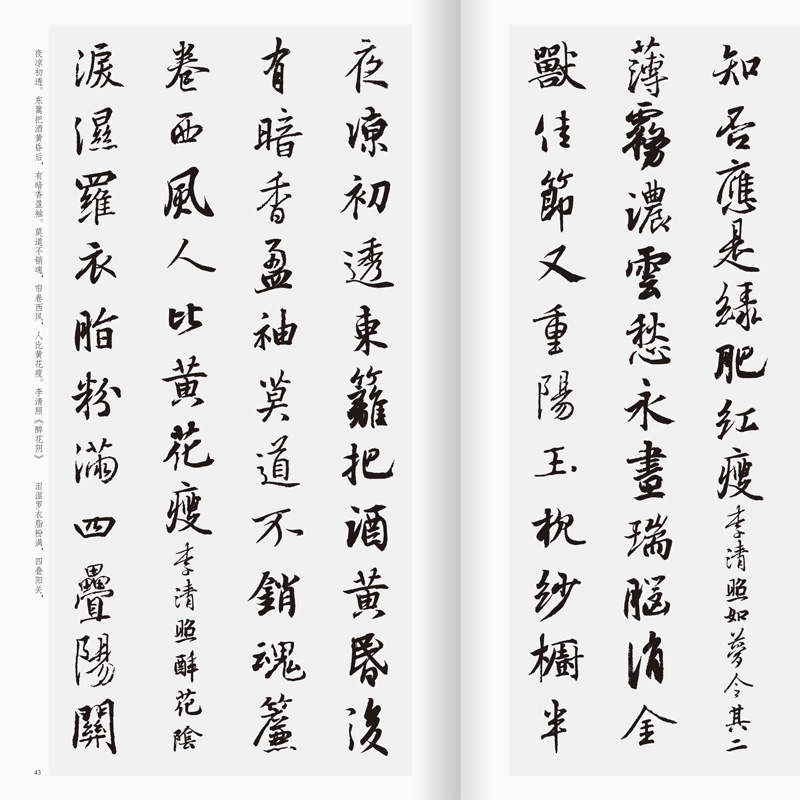 知否應是綠肥紅瘦李清照如夢令其二
薄霧濃雲愁永晝瑞腦消金
獸佳節又重陽玉枕紗櫥半
夜涼初透東籬把酒黃昏後
有暗香盈袖莫道不銷魂簾
卷西風人比黃花瘦李清照醉花陰
淚濕羅衣脂粉滿四疊陽關
夜凉初透。东篱把酒黄昏后，有暗香盈袖。莫道不销魂，帘卷西风，人比黄花瘦。李清照《醉花阴》　泪湿罗衣脂粉满，四叠阳关，
43